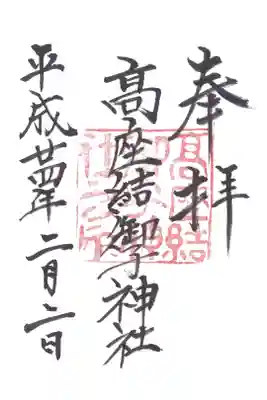 奉拝
高座結御子神社
平成廿四年二月二日